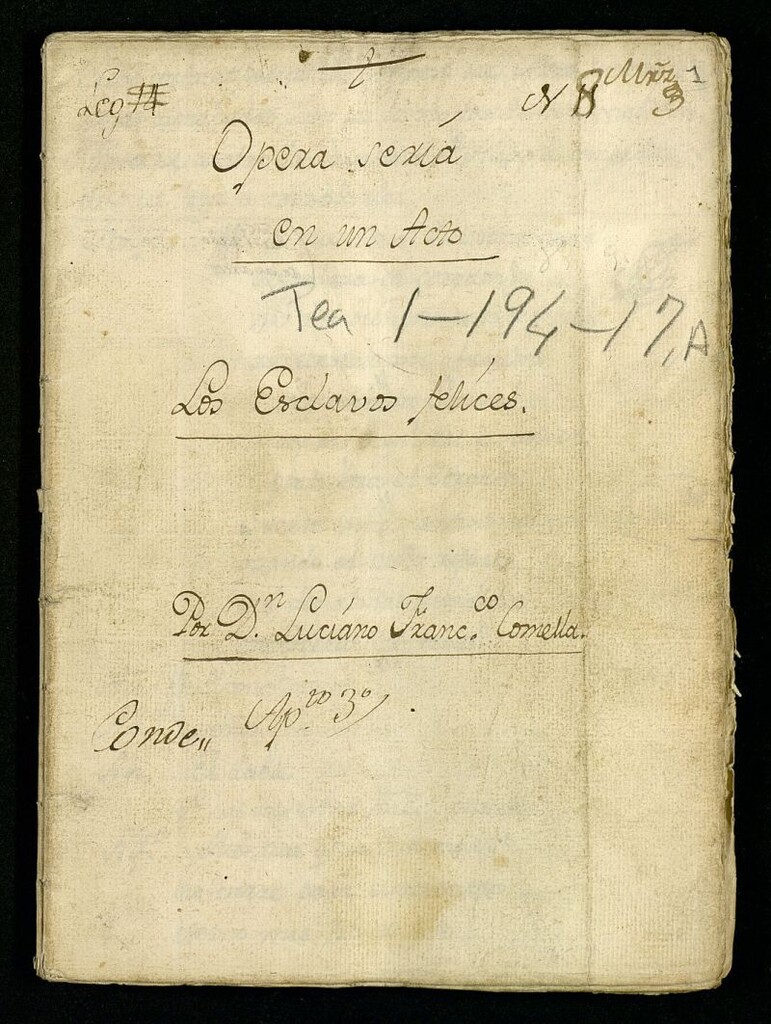 Leg
N 8
1
Opera seria
en un Acto
Tea 1-194-17, A
Los Esclavos felíces.
Por Dⁿ. Luciáno Francᶜᵒ. Comella.
Conde,, Apᵗᵒ 3º